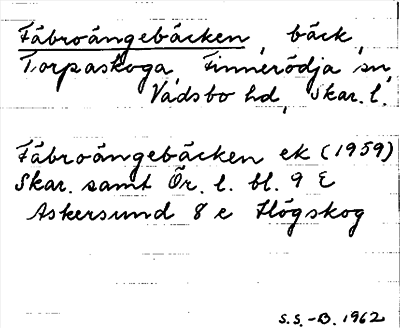 Fäbroängebäcken, bäck,
Torpaskoga, Finnerödja sn,
Vadsbo hd, Skar. l.
Fäbroängebäcken ek (1959)
Skar. samt Ör. l. bl. 9 E
Askersund 8 e Högskog
S.S.-B. 1962